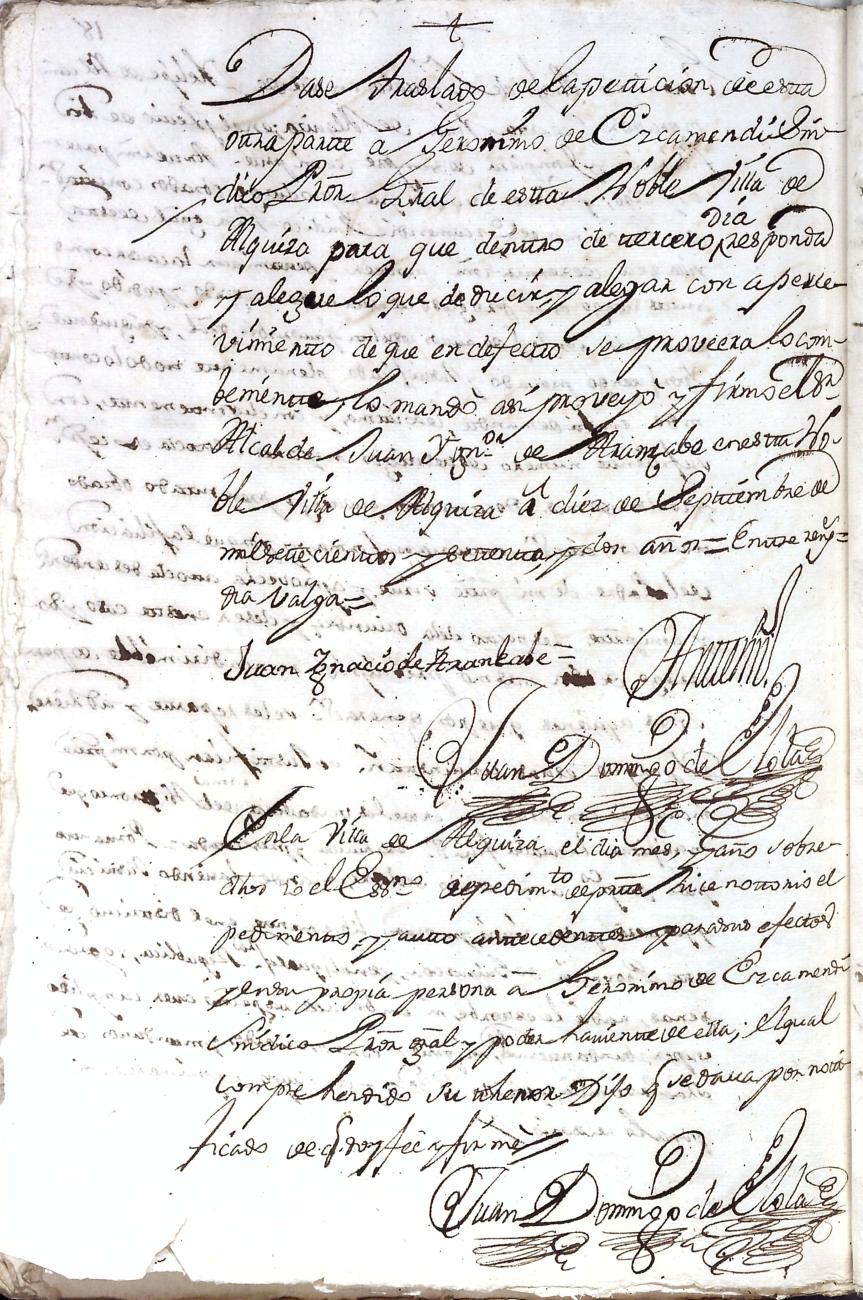 Dase traslado de la petticion de estta
ottra partte â Geronimo de Ezcamendi Sin-
dico Pròr Gràl de estta Noble Villa de
Alquiza para que denttro de ttercero
dia
responda
y alegue lo que deducir, y alegar con aperce-
vimientto de que en defectto se proveera lo com-
beniente, lo mandò, asi proveyò y firmò el Sr
Alcalde Juan Ygnº de Aranzabe en estta No-
ble Villa de Alquiza â diez de Septtiembre de
mil settecienttos y settentta y dos años = Enttre reng.s =
dia Valga =
Juan Ygnacio de Arankabe =
Antemi
Juan Domingo de Elola
En la Villa de Alquiza el dia mes, y año sobre-
dhos io el Essno de pedimto de partte hice nottorio el
pedimentto, y autto anttecedenttes para sus efecttos
en su propia persona â Geronimo de Ezcamendi
Sindico Pròr gràl y poder haviente de ella; el qual
comprehendido su thenor Dijo q se dava por notti-
ficado de q doy feè y firmè //
Juan Domingo de Elola